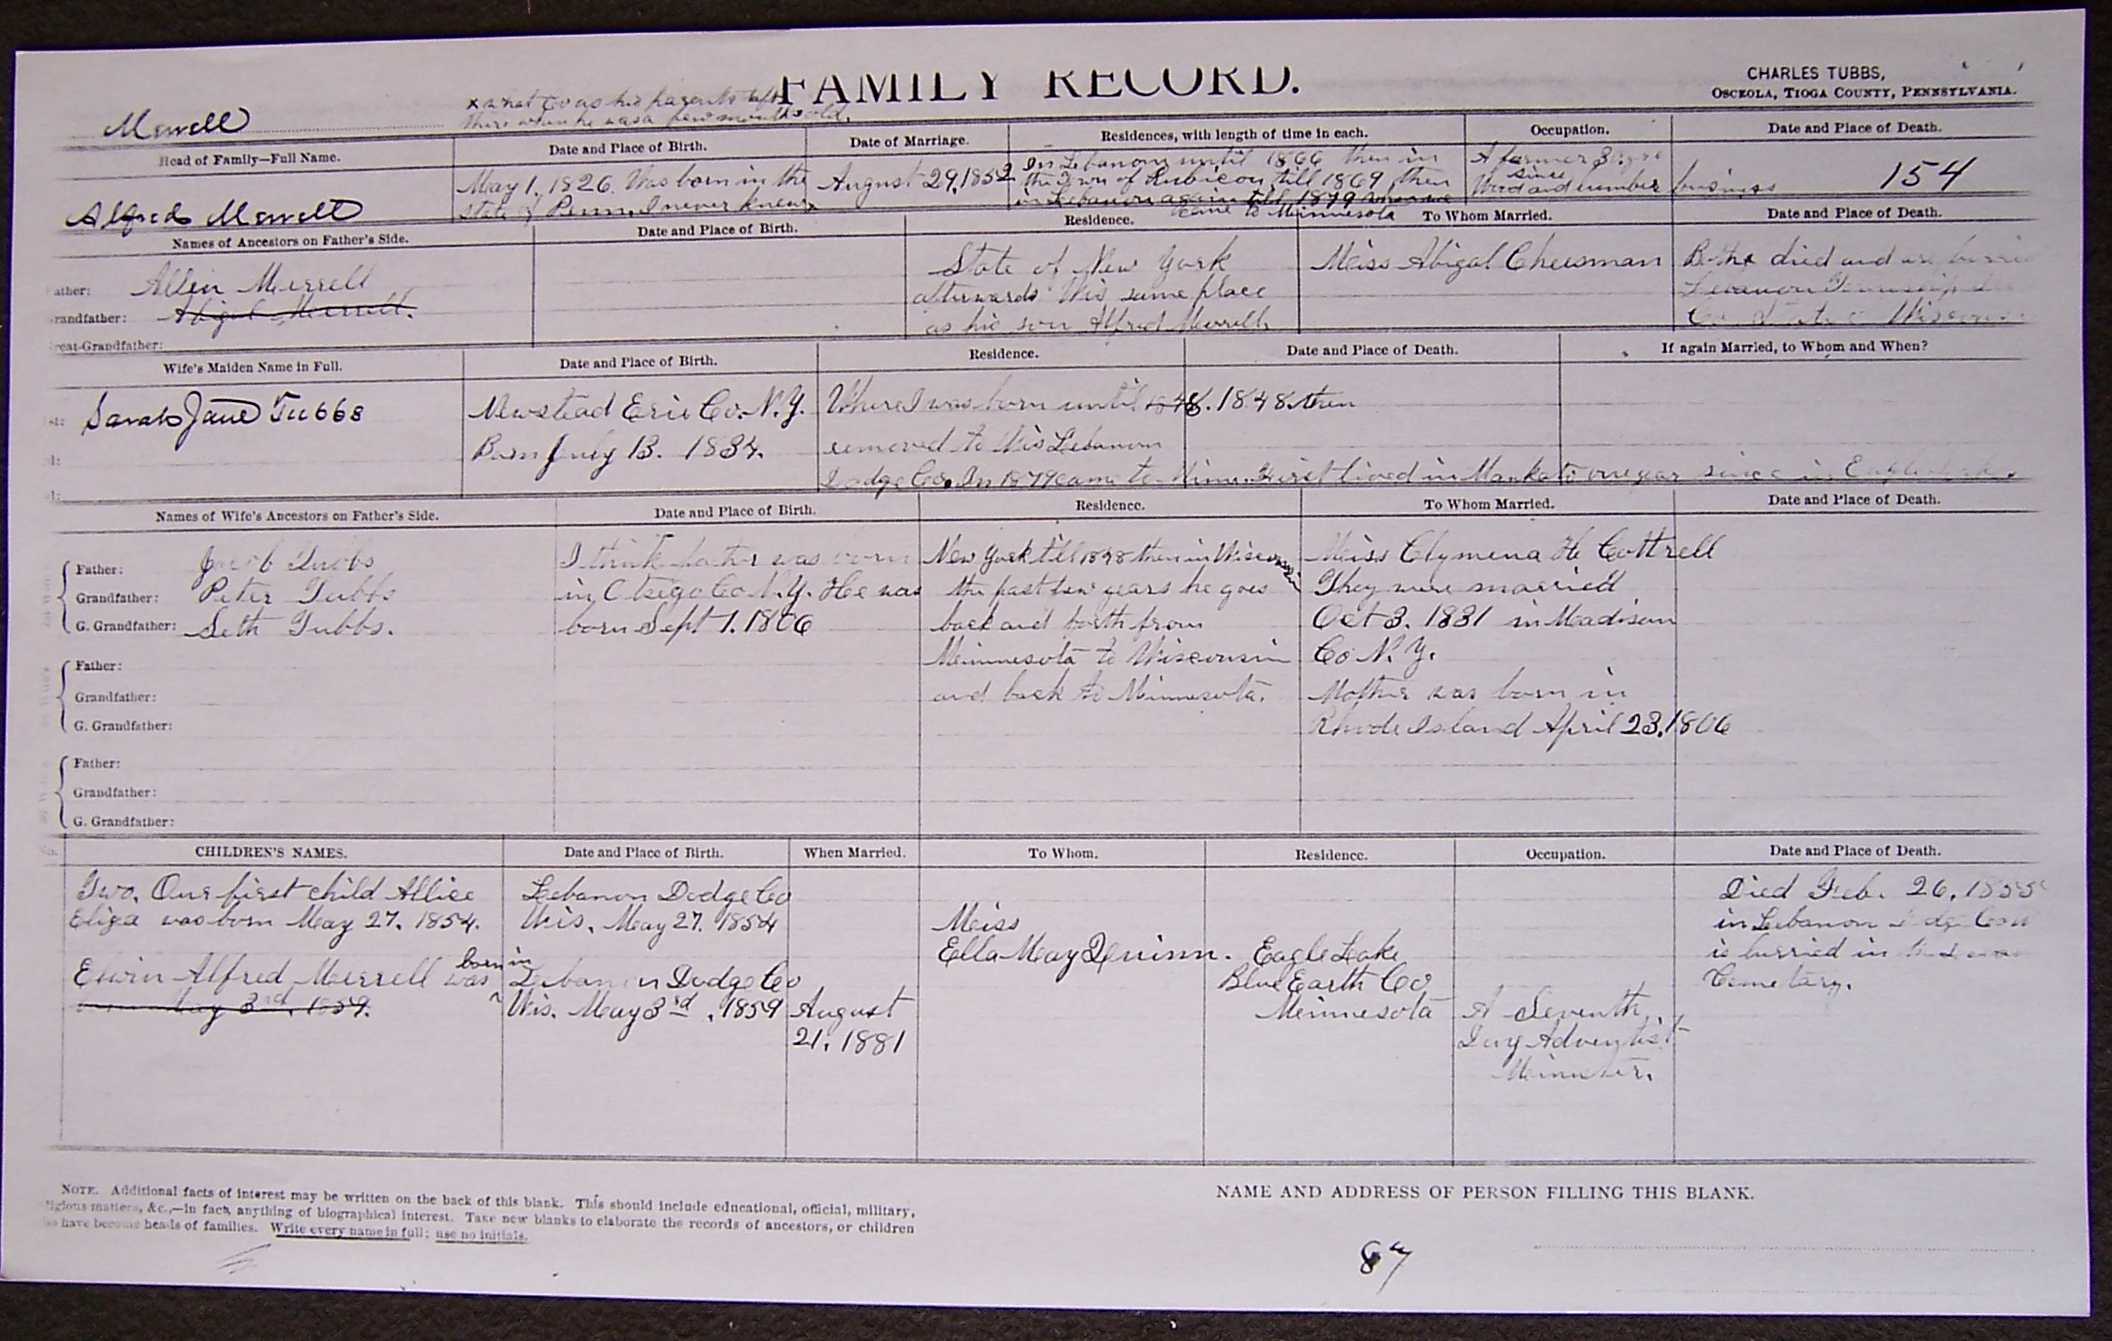 FAMILY RECORD.
CHARLES TUBBS,
OSCEOLA, TIOGA COUNTY, PENNSYLVANIA.
Merrell
x what Co as his parents left
there when he was a few months old.
Head of Family—Full Name.
Date and Place of Birth.
Date of Marriage.
Residences, with length of time in each.
Occupation.
Date and Place of Death.
Alfred Merrell
May 1. 1826. Was born in the
state of Penn. I never knew x
August 29, 1852
In Lebanon until 1866 then in
the Town of Rubicon till 1869 then
in Lebanon again till 1879
came to Minnesota
A farmer
since
Wood and lumber business
154
Names of Ancestors on Father's Side.
Date and Place of Birth.
Residence.
To Whom Married.
Date and Place of Death.
ather: Allen Merrell
randfather: Abigal Merrell.
reat-Grandfather:
State of New York
afterwards Wis same place
as his son Alfred Merrell
Miss Abigal Cheesman
Both died and are
Lebanon Township
Co. Wisconsin
Wife's Maiden Name in Full.
Date and Place of Birth.
Residence.
Date and Place of Death.
If again Married, to Whom and When?
Sarah Jane Tubbs
Newstead Erie Co. N.Y.
Born July 13. 1834.
Where I was born until 1848. 1848. then
removed to Wis Lebanon
Dodge Co. In 1879 came to Minn. First lived in Mankato one year since in Eagle Lake.
Names of Wife's Ancestors on Father's Side.
Date and Place of Birth.
Residence.
To Whom Married.
Date and Place of Death.
Father: Jacob Tubbs
Grandfather: Peter Tubbs
G. Grandfather: Seth Tubbs.
I think father was born
in Otsego Co N.Y. He was
born Sept 1. 1806
New York till 1848 then in Wisconsin
the past few years he goes
back and forth from
Minnesota to Wisconsin
and back to Minnesota.
Miss Clymena H. Cottrell
They were married
Oct 3. 1831 in Madison
Co N.Y.
Mother was born in
Rhode Island April 23. 1806
Father:
Grandfather:
G. Grandfather:
Father:
Grandfather:
G. Grandfather:
CHILDREN'S NAMES.
Date and Place of Birth.
When Married.
To Whom.
Residence.
Occupation.
Date and Place of Death.
Two. Our first child Allice
Eliza was born May 27. 1854.
Lebanon Dodge Co
Wis. May 27. 1854
Died Feb. 26, 1855
in Lebanon Dodge Co
is burried in
Cemetary.
Edwin Alfred Merrell was born in
May 3rd, 1859.
Lebanon Dodge Co
Wis. May 3rd, 1859
August
21, 1881
Miss
Ella May Quinn.
Eagle Lake
Blue Earth Co
Minnesota
A Seventh
Day Adventist
Minister.
NOTE. Additional facts of interest may be written on the back of this blank. This should include educational, official, military,
ligious matters, &c.,—in fact, anything of biographical interest. Take new blanks to elaborate the records of ancestors, or children
have become heads of families. Write every name in full; use no initials.
NAME AND ADDRESS OF PERSON FILLING THIS BLANK.
87